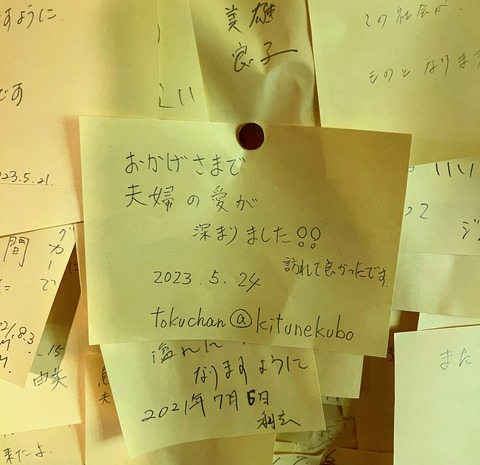 すように
です
2023.5.21
美雄
良子
この社会が
ものとなります
おかげさまで
夫婦の愛が
深まりました!!
訪れて良かったです。
2023.5.24
tokuchan@kitunekubo
間
で
8.3
15
由美
なりますように
2021年7月6日
また
来たよ.